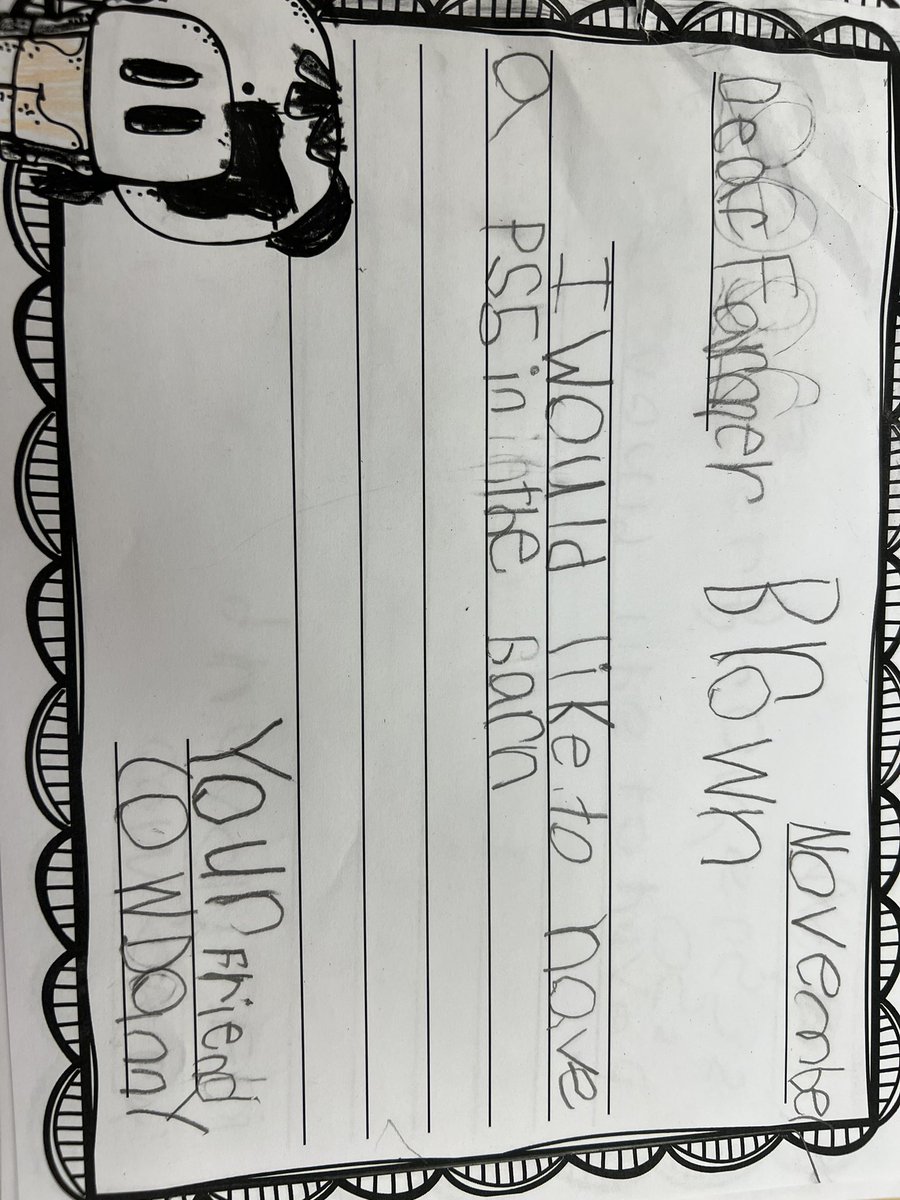 November
Dear Farmer Brown
I would like to have
a PS5 in the barn
Your Friend
COW Danny